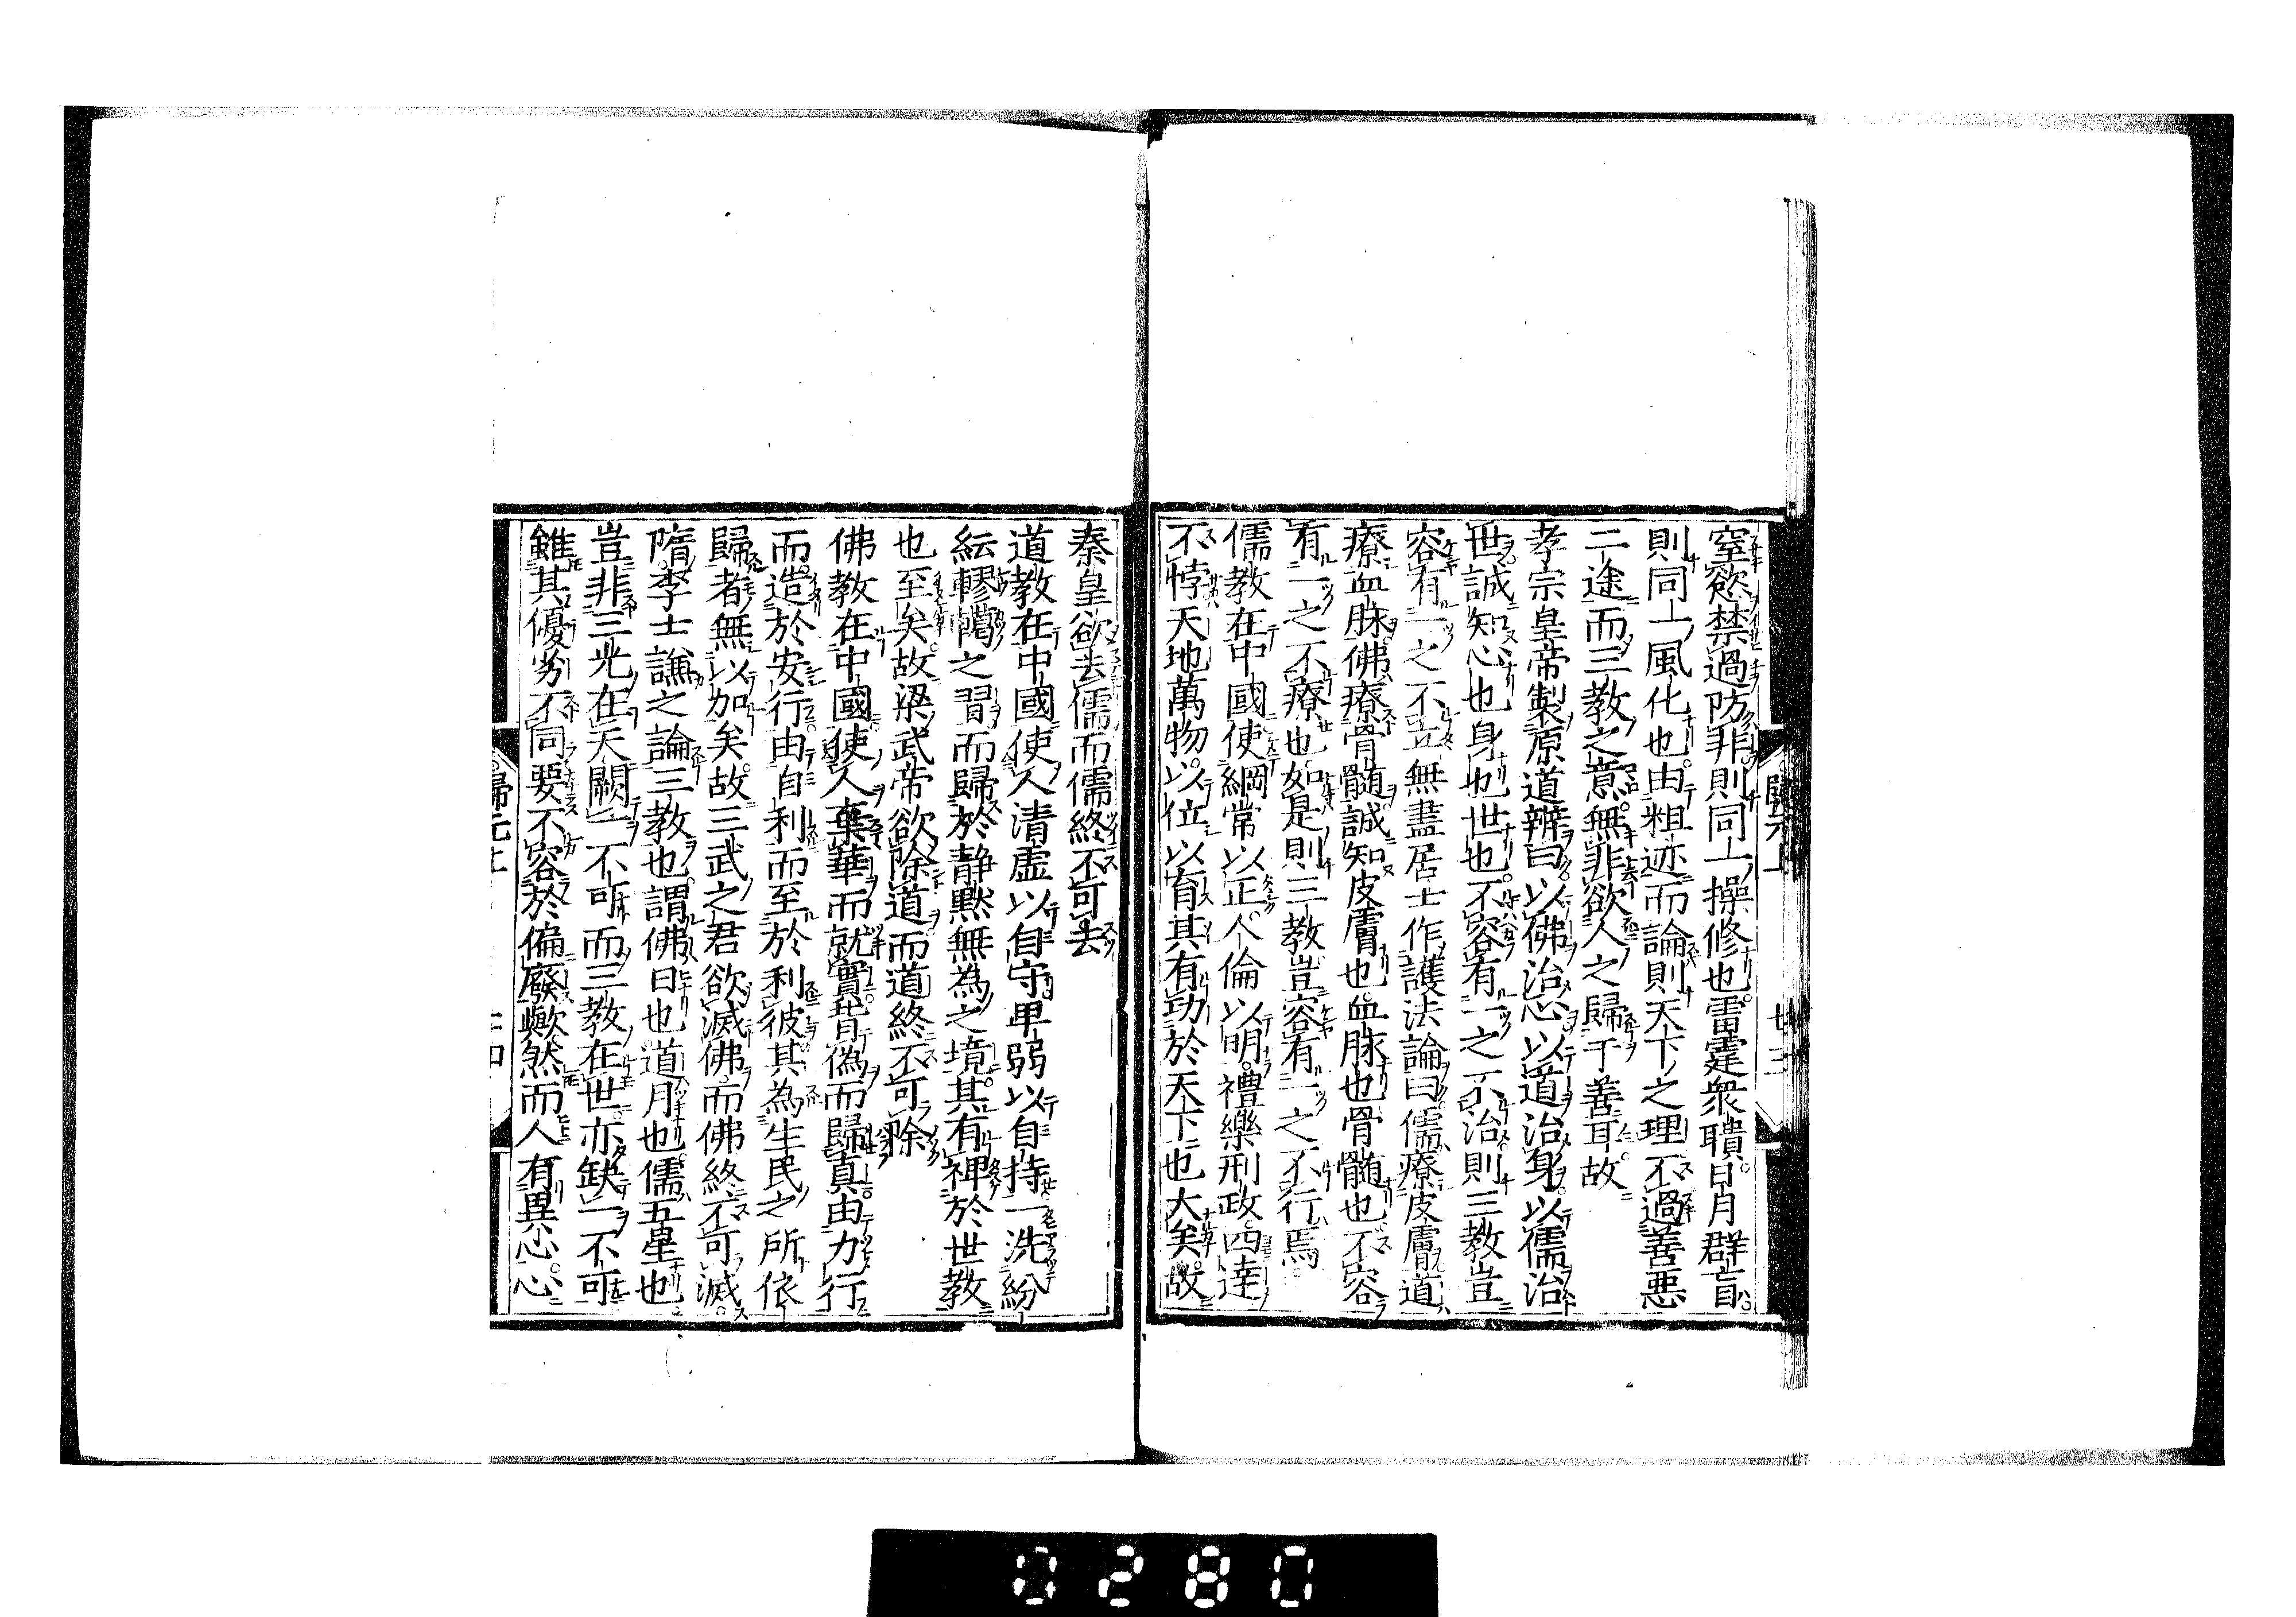 窒慾禁過防非則同一操修也雷霆衆聵日月群盲
則同一風化也由粗迹而論則天下之理不過善惡
二途而三教之意無非欲人之歸于善耳故
孝宗皇帝製原道辨曰以佛治心以道治身以儒治
世誠知心也身也世也不容有一之不治則三教豈
容有一之不立無盡居士作護法論曰儒療皮膚道
療血脉佛療骨髄誠知皮膚也血脉也骨髄也不容
有一之不療也如是則三教豈容有一之不行焉
儒教在中國使綱常以正人倫以明禮樂刑政四達
不悖天地萬物以位以育其有功於天下也大矣故
歸元上
廿三
秦皇欲去儒而儒終不可去
道教在中國使人清虚以自守卑弱以自持一洗紛
紜轇轕之習而歸於静黙無為之境其有裨於世教
也至矣故梁武帝欲除道而道終不可除
佛教在中國使人棄華而就實背偽而歸真由力行
而造於安行由自利而至於利彼其為生民之所依
歸者無以加矣故三武之君欲滅佛而佛終不可滅
隋李士謙之論三教也謂佛日也道月也儒五星也
豈非三光在天闕一不可而三教在世亦缺一不可
雖其優劣不同要不容於偏廢歟然而人有異心心
歸元上
二十四
0280